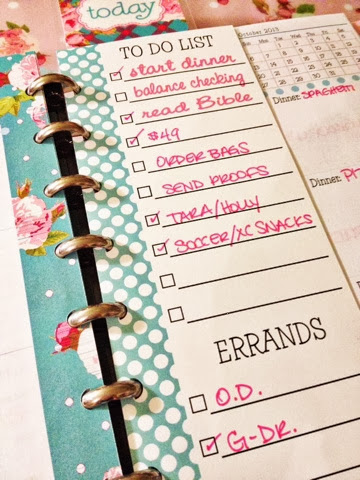 today
TO DO LIST
start dinner
balance checking
read Bible
$49
ORDER BAGS
SEND PROOFS
TARA/HOLLY
SOCCER/XC SNACKS
ERRANDS
O.D.
G-DR.
October 2013
Dinner: SPAGHETTI
Dinner: